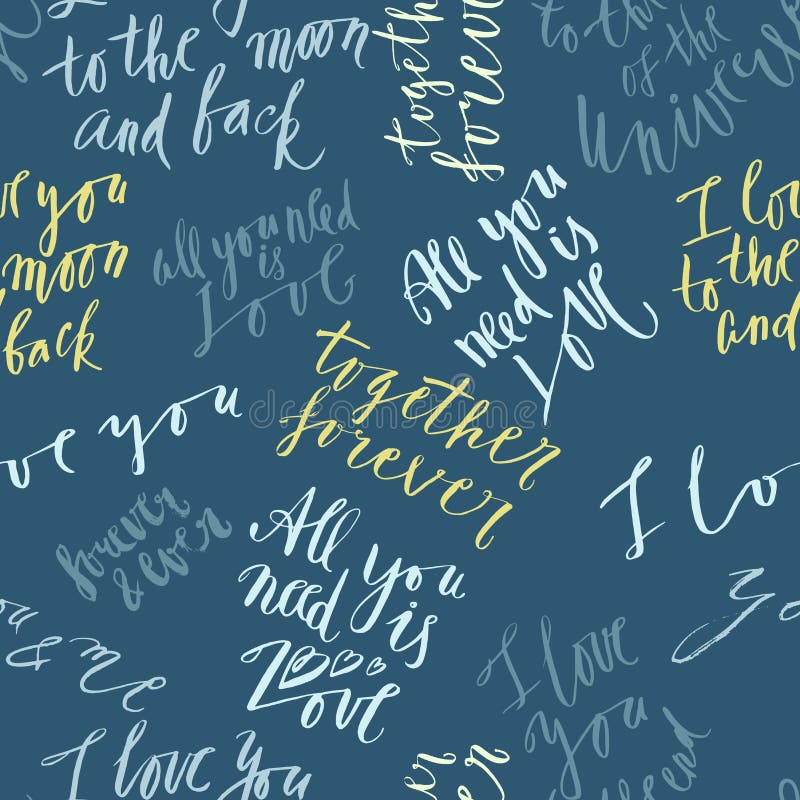 to the moon
and back
together
forever
to the
of the
Universe
ve you
moon
back
all you need
is
Love
All you
need is
Love
I lo
to the
and
together
forever
ve you
forever
& ever
I lo
All you
need is
Love
yo
u & me
I love
you
I love you
ever
ever
send
dreamstime